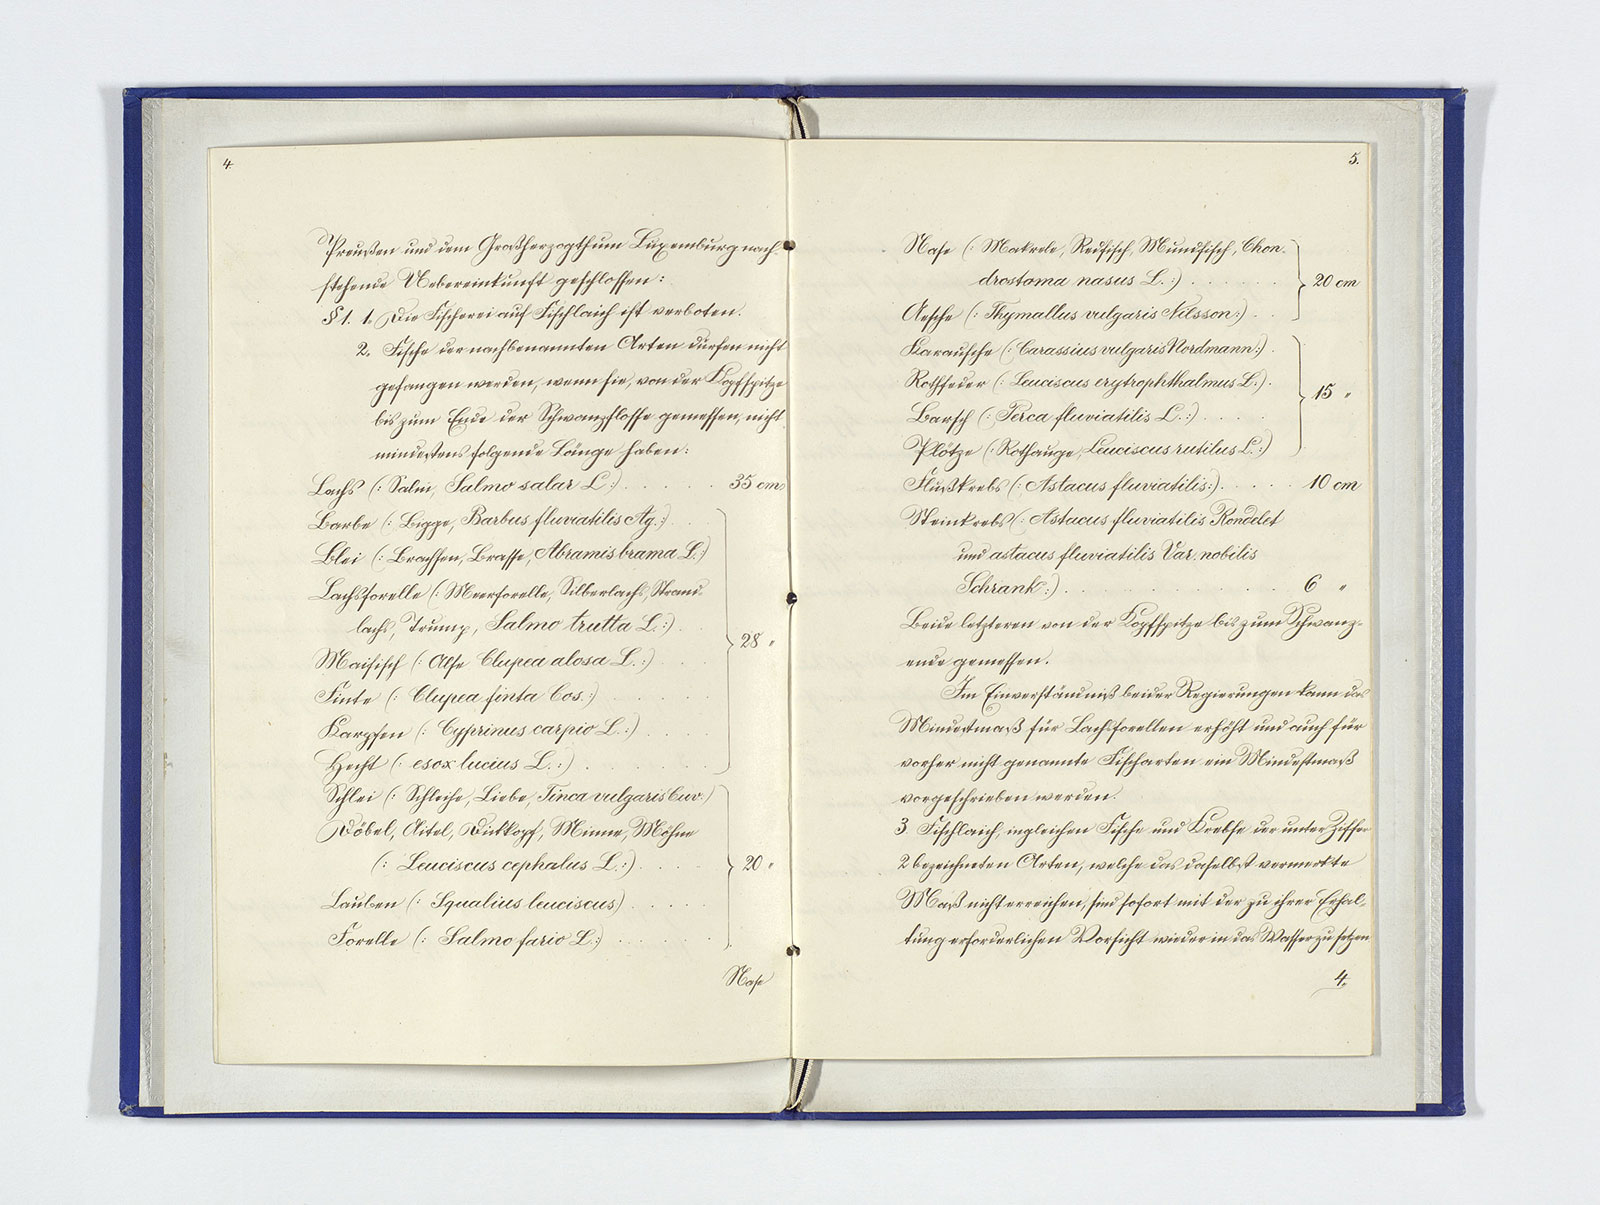 4.
Preußen und dem Großherzogthum Luxemburg nach-
stehende Uebereinkunft geschlossen:
§ 1. 1. Die Fischerei auf Fischlaich ist verboten.
2. Fische der nachbenannten Arten dürfen nicht
gefangen werden, wenn sie, von der Kopfspitze
bis zum Ende der Schwanzflosse gemessen, nicht
mindestens folgende Länge haben:
Lachs (: Salm, Salmo salar L:) . . . . . 35 cm
Barbe (: Bigge, Barbus fluviatilis Ag.:) . . .
Blei (: Brachsen, Brasse, Abramis brama L.:)
Lachsforelle (: Meerforelle, Silberlachs, Strand-
lachs, Trump, Salmo trutta L.:) . .
28 "
Maifisch (: Alse Clupea alosa L.:) . . .
Finte (: Clupea finta Cos.:) . . . .
Karpfen (: Cyprinus carpio L.:) . . .
Hecht (: esox lucius L.:) . . . . .
Schlei (: Schleihe, Liebe, Tinca vulgaris Cuv.:)
Döbel, Aitel, Dickkopf, Minne, Möhne
(: Leuciscus cephalus L.:) . . . . 20 "
Lauben (: Squalius leuciscus) . . . .
Forelle (: Salmo fario L.:) . . . . .
Nase
5.
Nase (: Makrele, Mundfisch, Chon-
drostoma nasus L.:) . . . . . 20 cm
Aesche (: Thymallus vulgaris Nilsson:) . .
Karausche (: Carassius vulgaris Nordmann:) .
Rothfeder (: Leuciscus erytrophthalmus L.:) .
15 "
Barsch (: Perca fluviatilis L.:) . . . .
Plötze (: Rothauge, Leuciscus rutilus L.:)
Flußkrebs (: Astacus fluviatilis:) . . . . 10 cm
Steinkrebs (: Astacus fluviatilis Rondelet
und astacus fluviatilis Var. nobilis
Schrank:) . . . . . . . . 6 "
Beide letzteren von der Kopfspitze bis zum Schwanz-
ende gemessen.
Im Einverständniß beider Regierungen kann das
Mindestmaß für Lachsforellen erhöht und auch für
vorher nicht genannte Fischarten ein Mindestmaß
vorgeschrieben werden.
3 Fischlaich, ingleichen Fische und Krebse der unter Ziffer
2 bezeichneten Arten, welche das daselbst vermerkte
Maß nicht erreichen, sind sofort mit der zu ihrer Erhal-
tung erforderlichen Vorsicht wieder in das Wasser zu setzen
4.